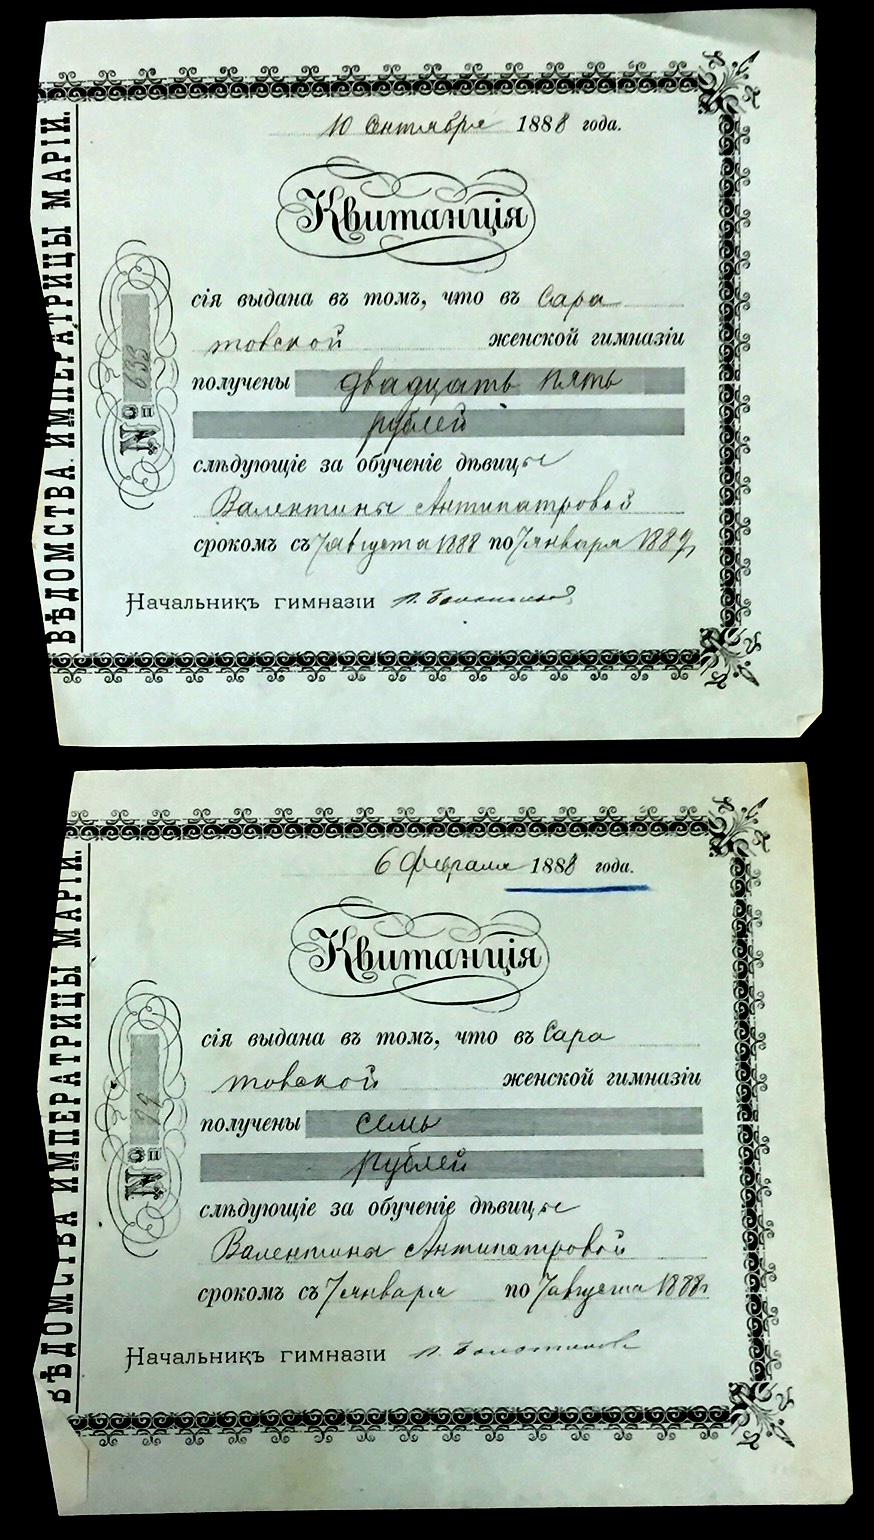 ВѢДОМСТВА ИМПЕРАТРИЦЫ МАРІИ.
№ 633
10 Сентября 1888 года.
Квитанція
сія выдана въ томъ, что въ Сара
товской женской гимназіи
получены двадцать пять
рублей
слѣдующіе за обученіе дѣвицы
Валентины Антипатровой
срокомъ съ 7 августа 1888 по 7 января 1889
Начальникъ гимназіи
ВѢДОМСТВА ИМПЕРАТРИЦЫ МАРІИ.
№ 99
6 Февраля 1888 года.
Квитанція
сія выдана въ томъ, что въ Сара
товской женской гимназіи
получены семь
рублей
слѣдующіе за обученіе дѣвицы
Валентины Антипатровой
срокомъ съ 7 января по 7 августа 1888 г
Начальникъ гимназіи